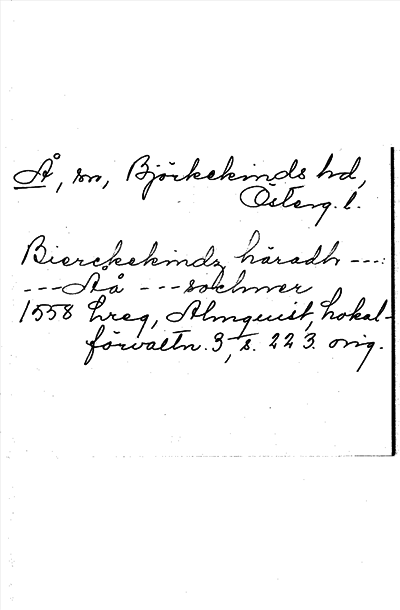 Å, sn, Björkekinds hd,
Österg. l.
Bierckekindz häradh ---:
---Aå --- sochner
1558 hreg, Almquist, Lokal-
förvaltn. 3, s. 223. orig.